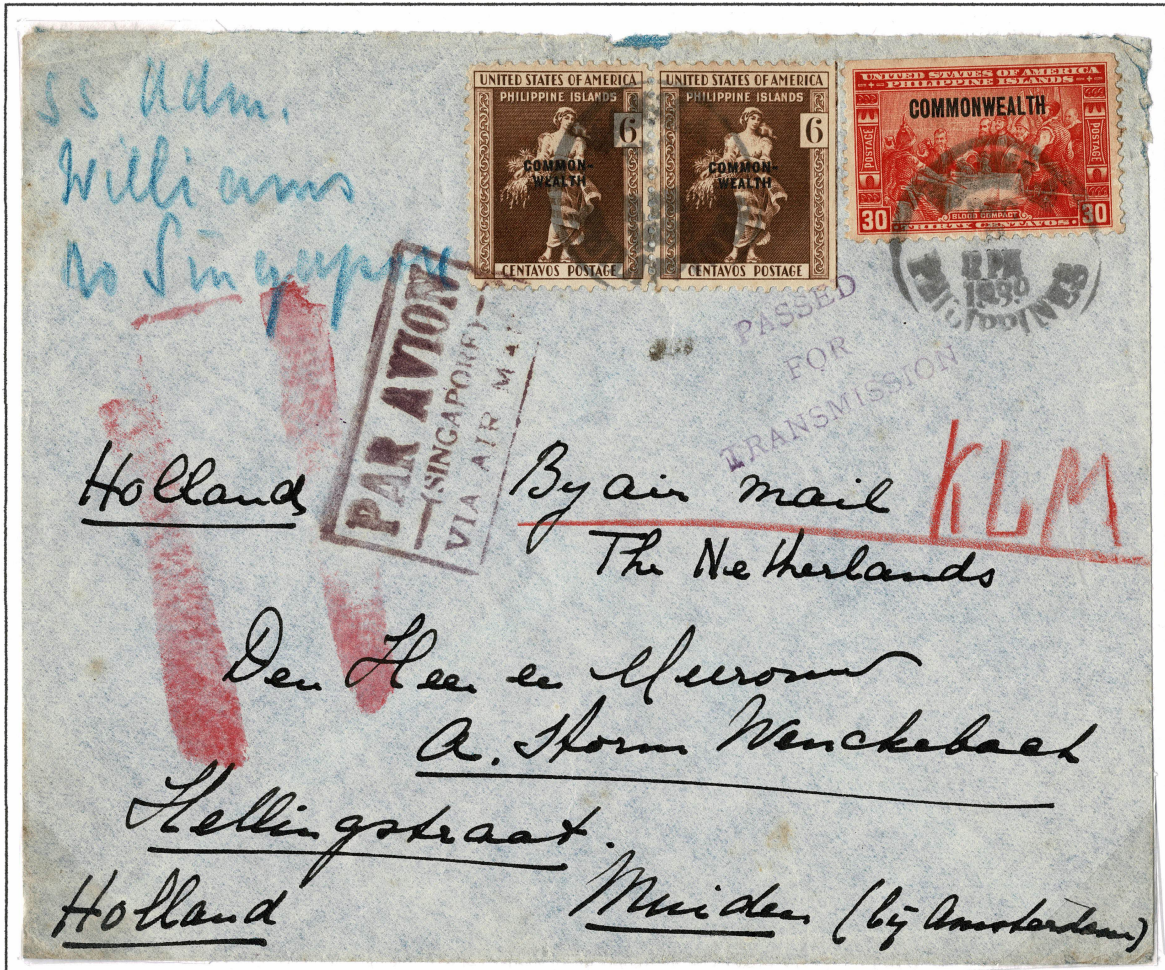 SS Adm.
Williams
to Singapore
UNITED STATES OF AMERICA
PHILIPPINE ISLANDS
6
COMMON-
WEALTH
CENTAVOS POSTAGE
UNITED STATES OF AMERICA
PHILIPPINE ISLANDS
6
COMMON-
WEALTH
CENTAVOS POSTAGE
UNITED STATES OF AMERICA
PHILIPPINE ISLANDS
COMMONWEALTH
POSTAGE
POSTAGE
30 BLOOD COMPACT 30
THIRTY CENTAVOS
PHILIPPINES
PASSED
FOR
TRANSMISSION
PAR AVION
(SINGAPORE)
VIA AIR MAIL
Holland
By air mail KLM
The Netherlands
Den Heer en Mevrouw
A. Storm Wenckebach
Hellingstraat.
Muiden (bij Amsterdam)
Holland